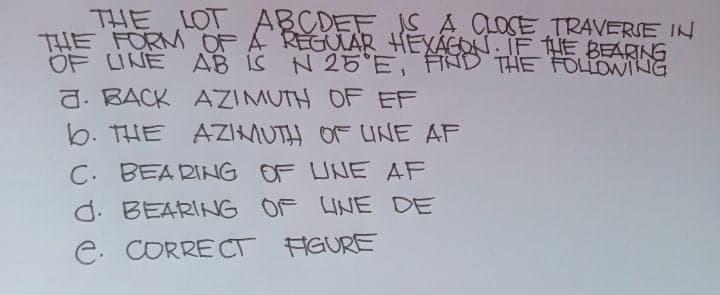 THE LOT ABCDEF IS A CLOSE TRAVERSE IN
THE FORM OF A REGULAR HEXAGON. IF THE BEARING
OF LINE AB IS N 25°E, FIND THE FOLLOWING
a. BACK AZIMUTH OF EF
b. THE AZIMUTH OF LINE AF
C. BEARING OF LINE AF
d. BEARING OF LINE DE
e. CORRECT FIGURE